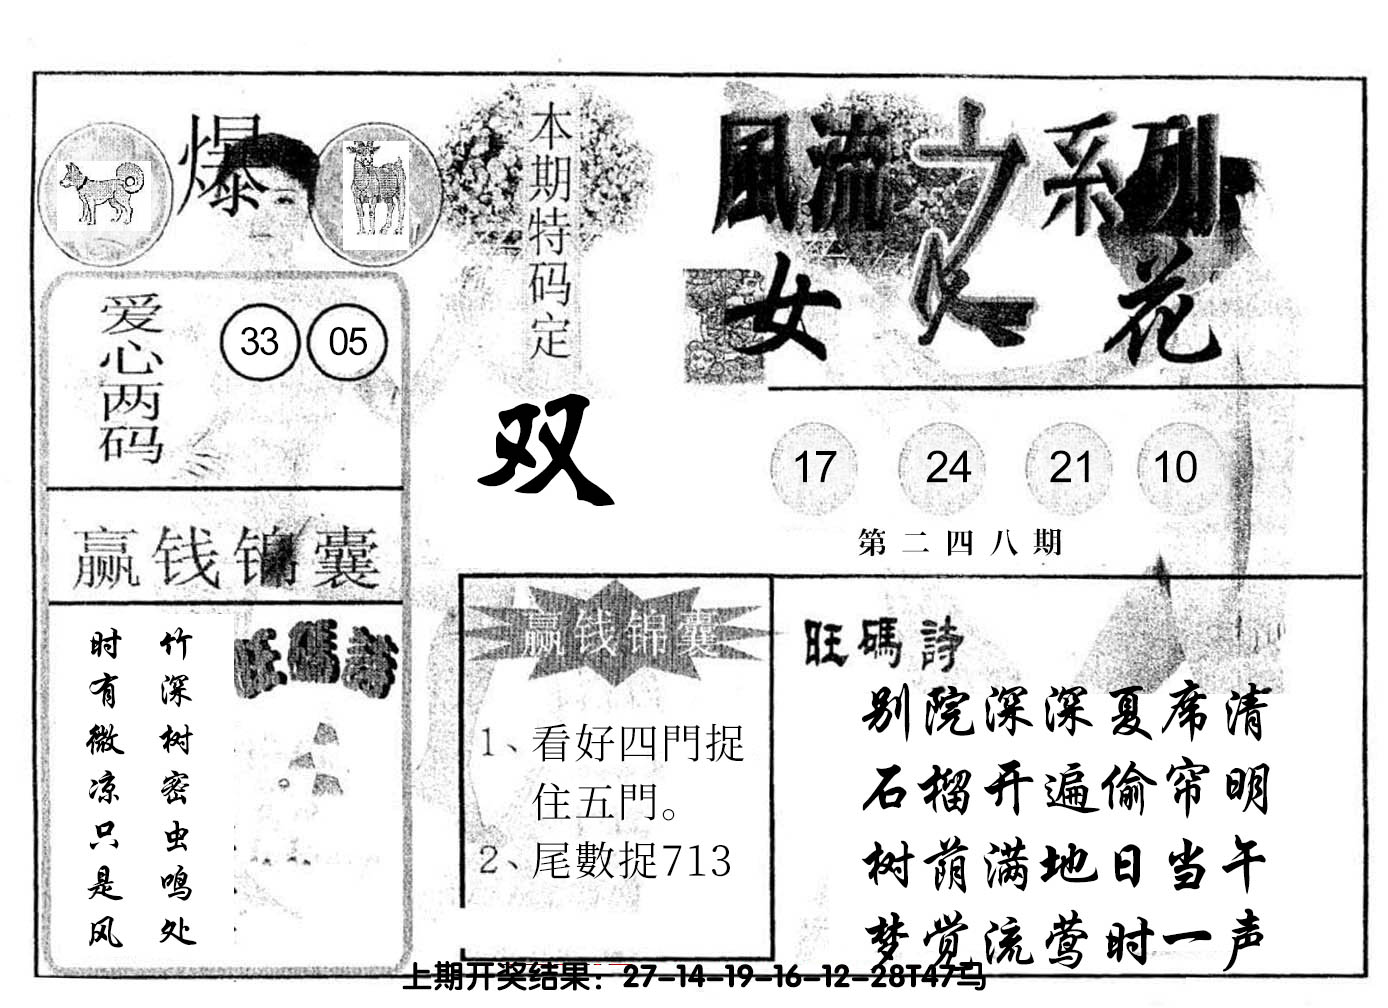 爆
本期特码定
双
風流之系列
女人花
爱心两码
33 05
17 24 21 10
第二四八期
赢钱锦囊
竹深树密虫鸣处
时有微凉只是风
旺碼詩
赢钱锦囊
1、看好四門捉
住五門。
2、尾數捉713
旺碼詩
别院深深夏席清
石榴开遍偷帘明
树荫满地日当午
梦觉流莺时一声
上期开奖结果：27-14-19-16-12-28T47鸟